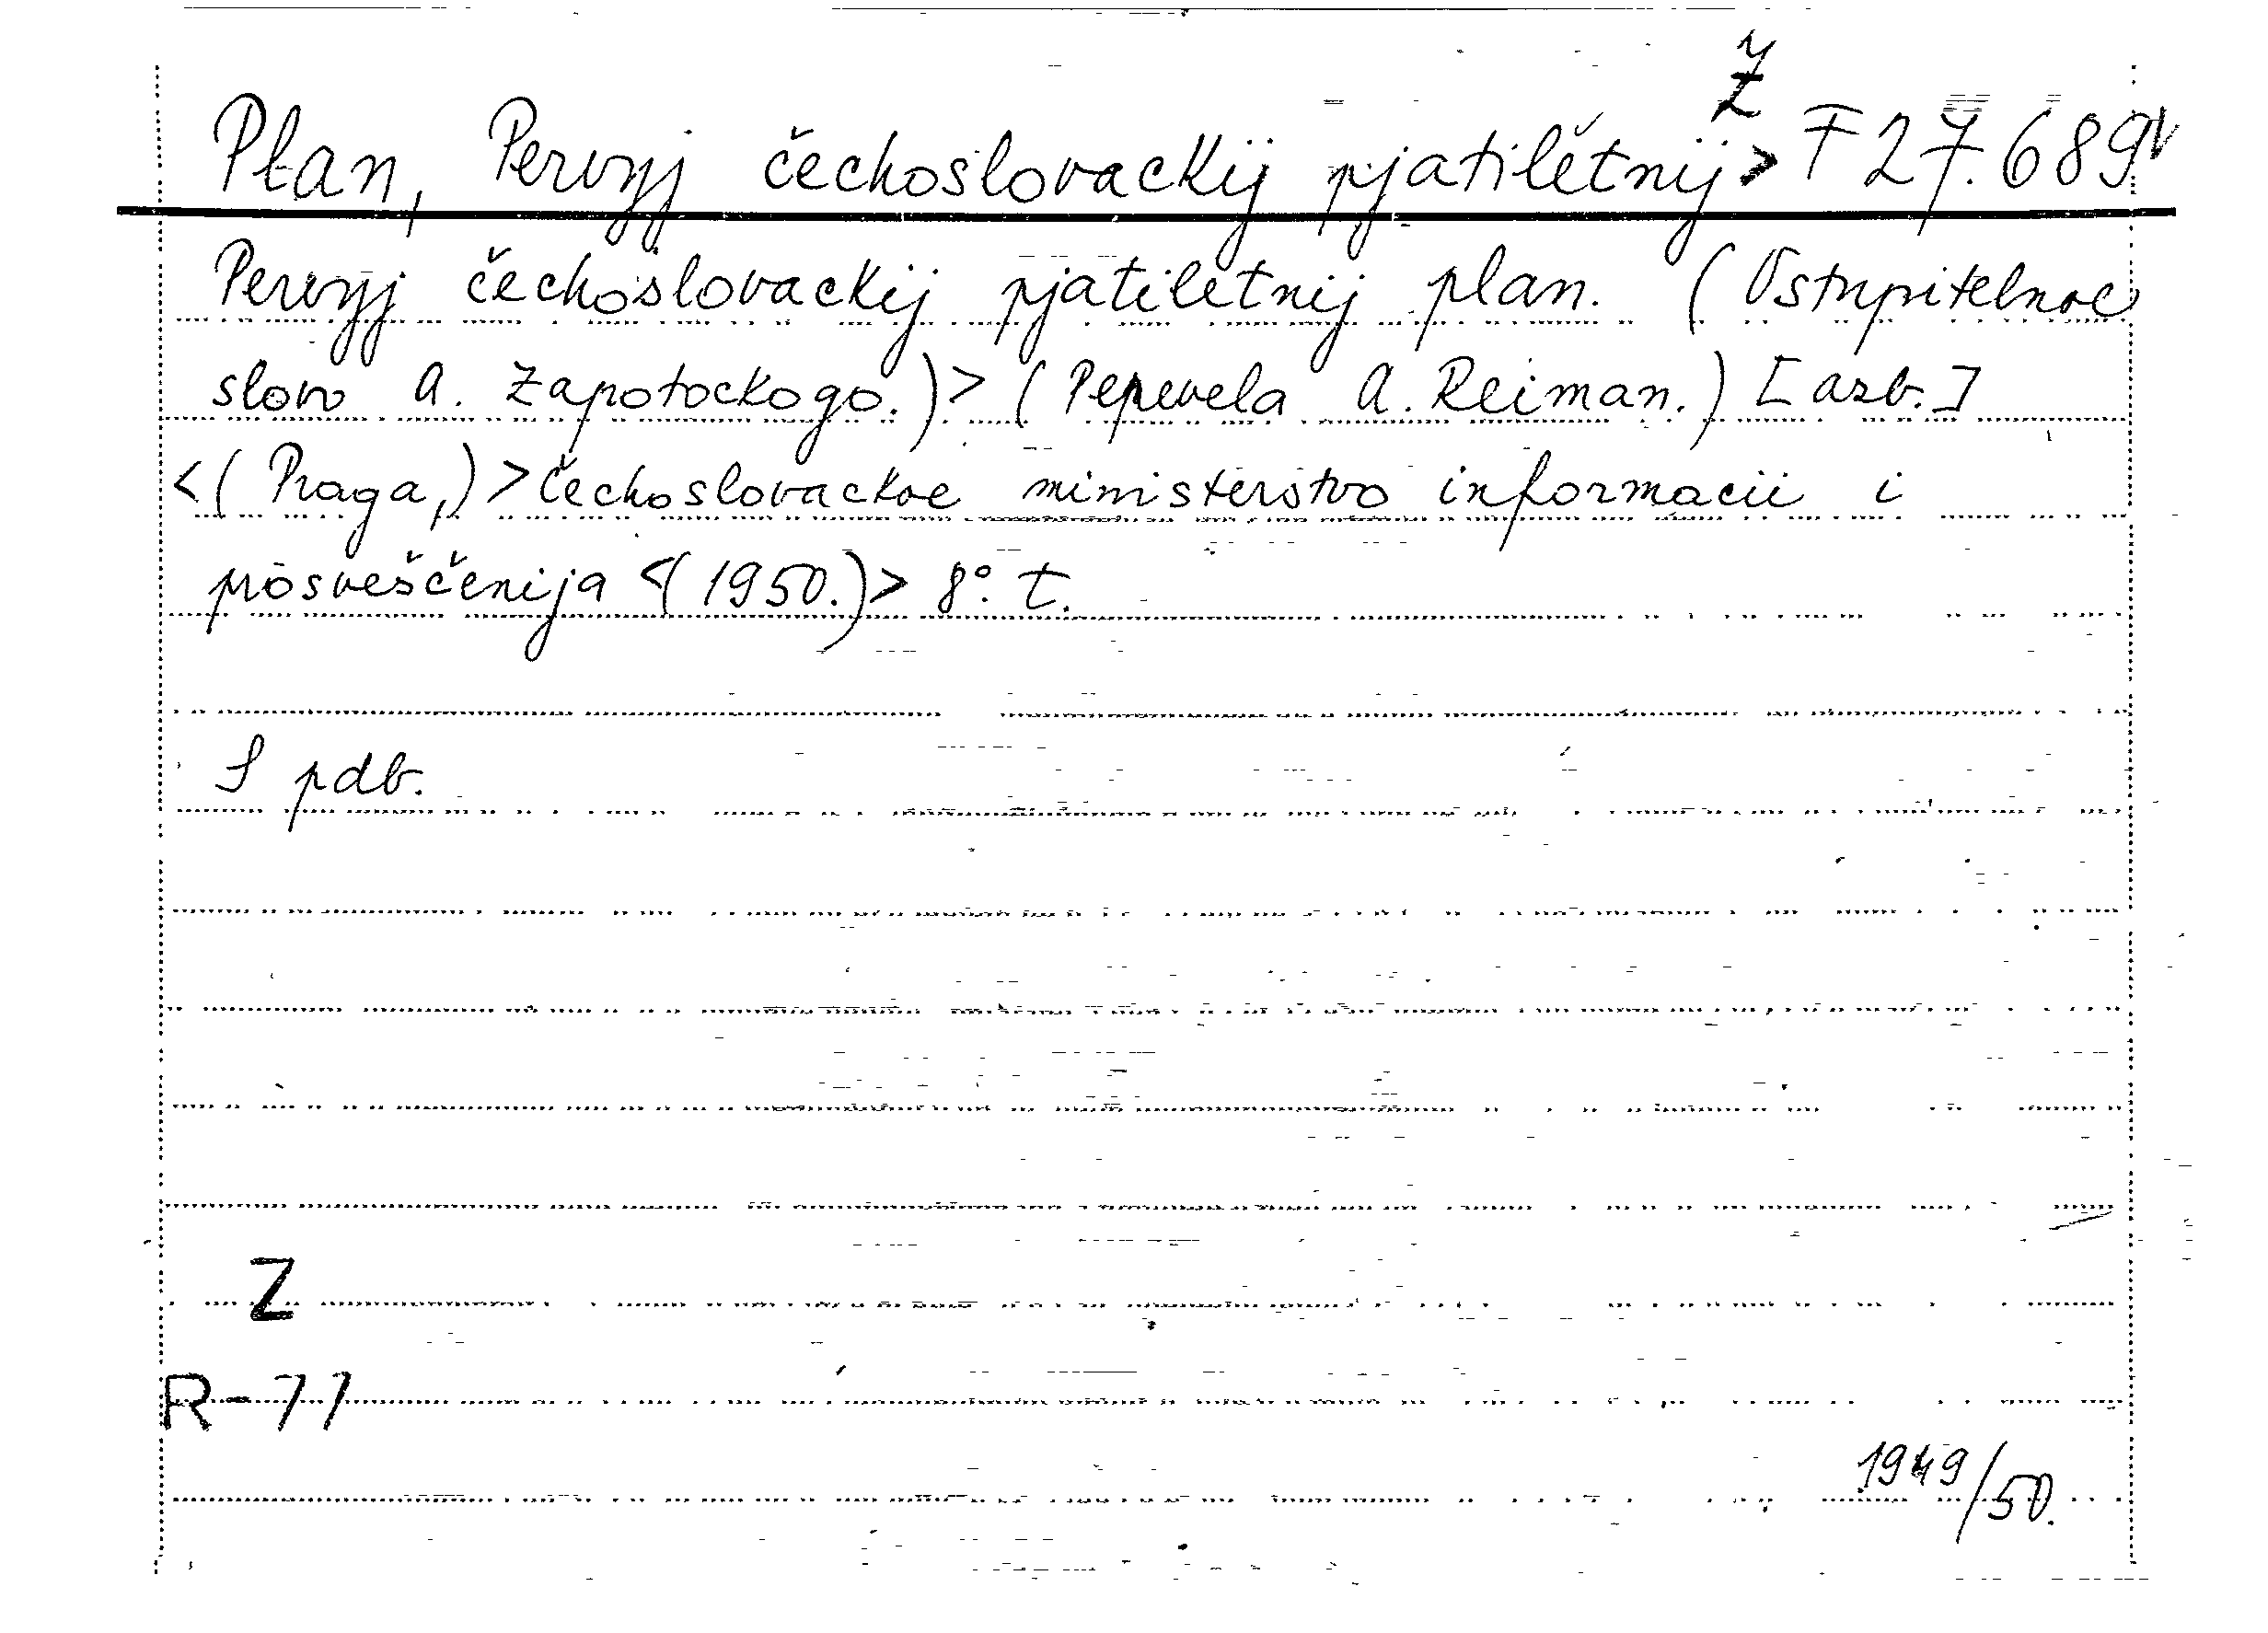 Ž
Plan, Pervyj čechoslovackij pjatilětnij> F 27.689
Pervyj čechoslovackij pjatiletnij plan. (Vstupitelnoe
slovo A. Zapotockogo.)> (Perevela A. Reiman.) [azb.]
<(Praga,)> Čechoslovackoe ministerstvo informacii i
prosveščenija <(1950.)> 8°. t.
S pdb.
Z
R-77
1949/50.